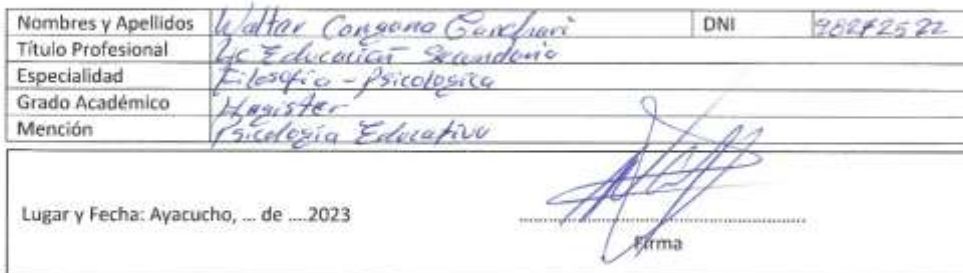 Nombres y Apellidos Walter DNI
Título Profesional Lic Educación Secundaria
Especialidad Filosofía - Psicologica
Grado Académico Magister
Mención Psicología Educativa
Lugar y Fecha: Ayacucho, ... de ....2023
Firma